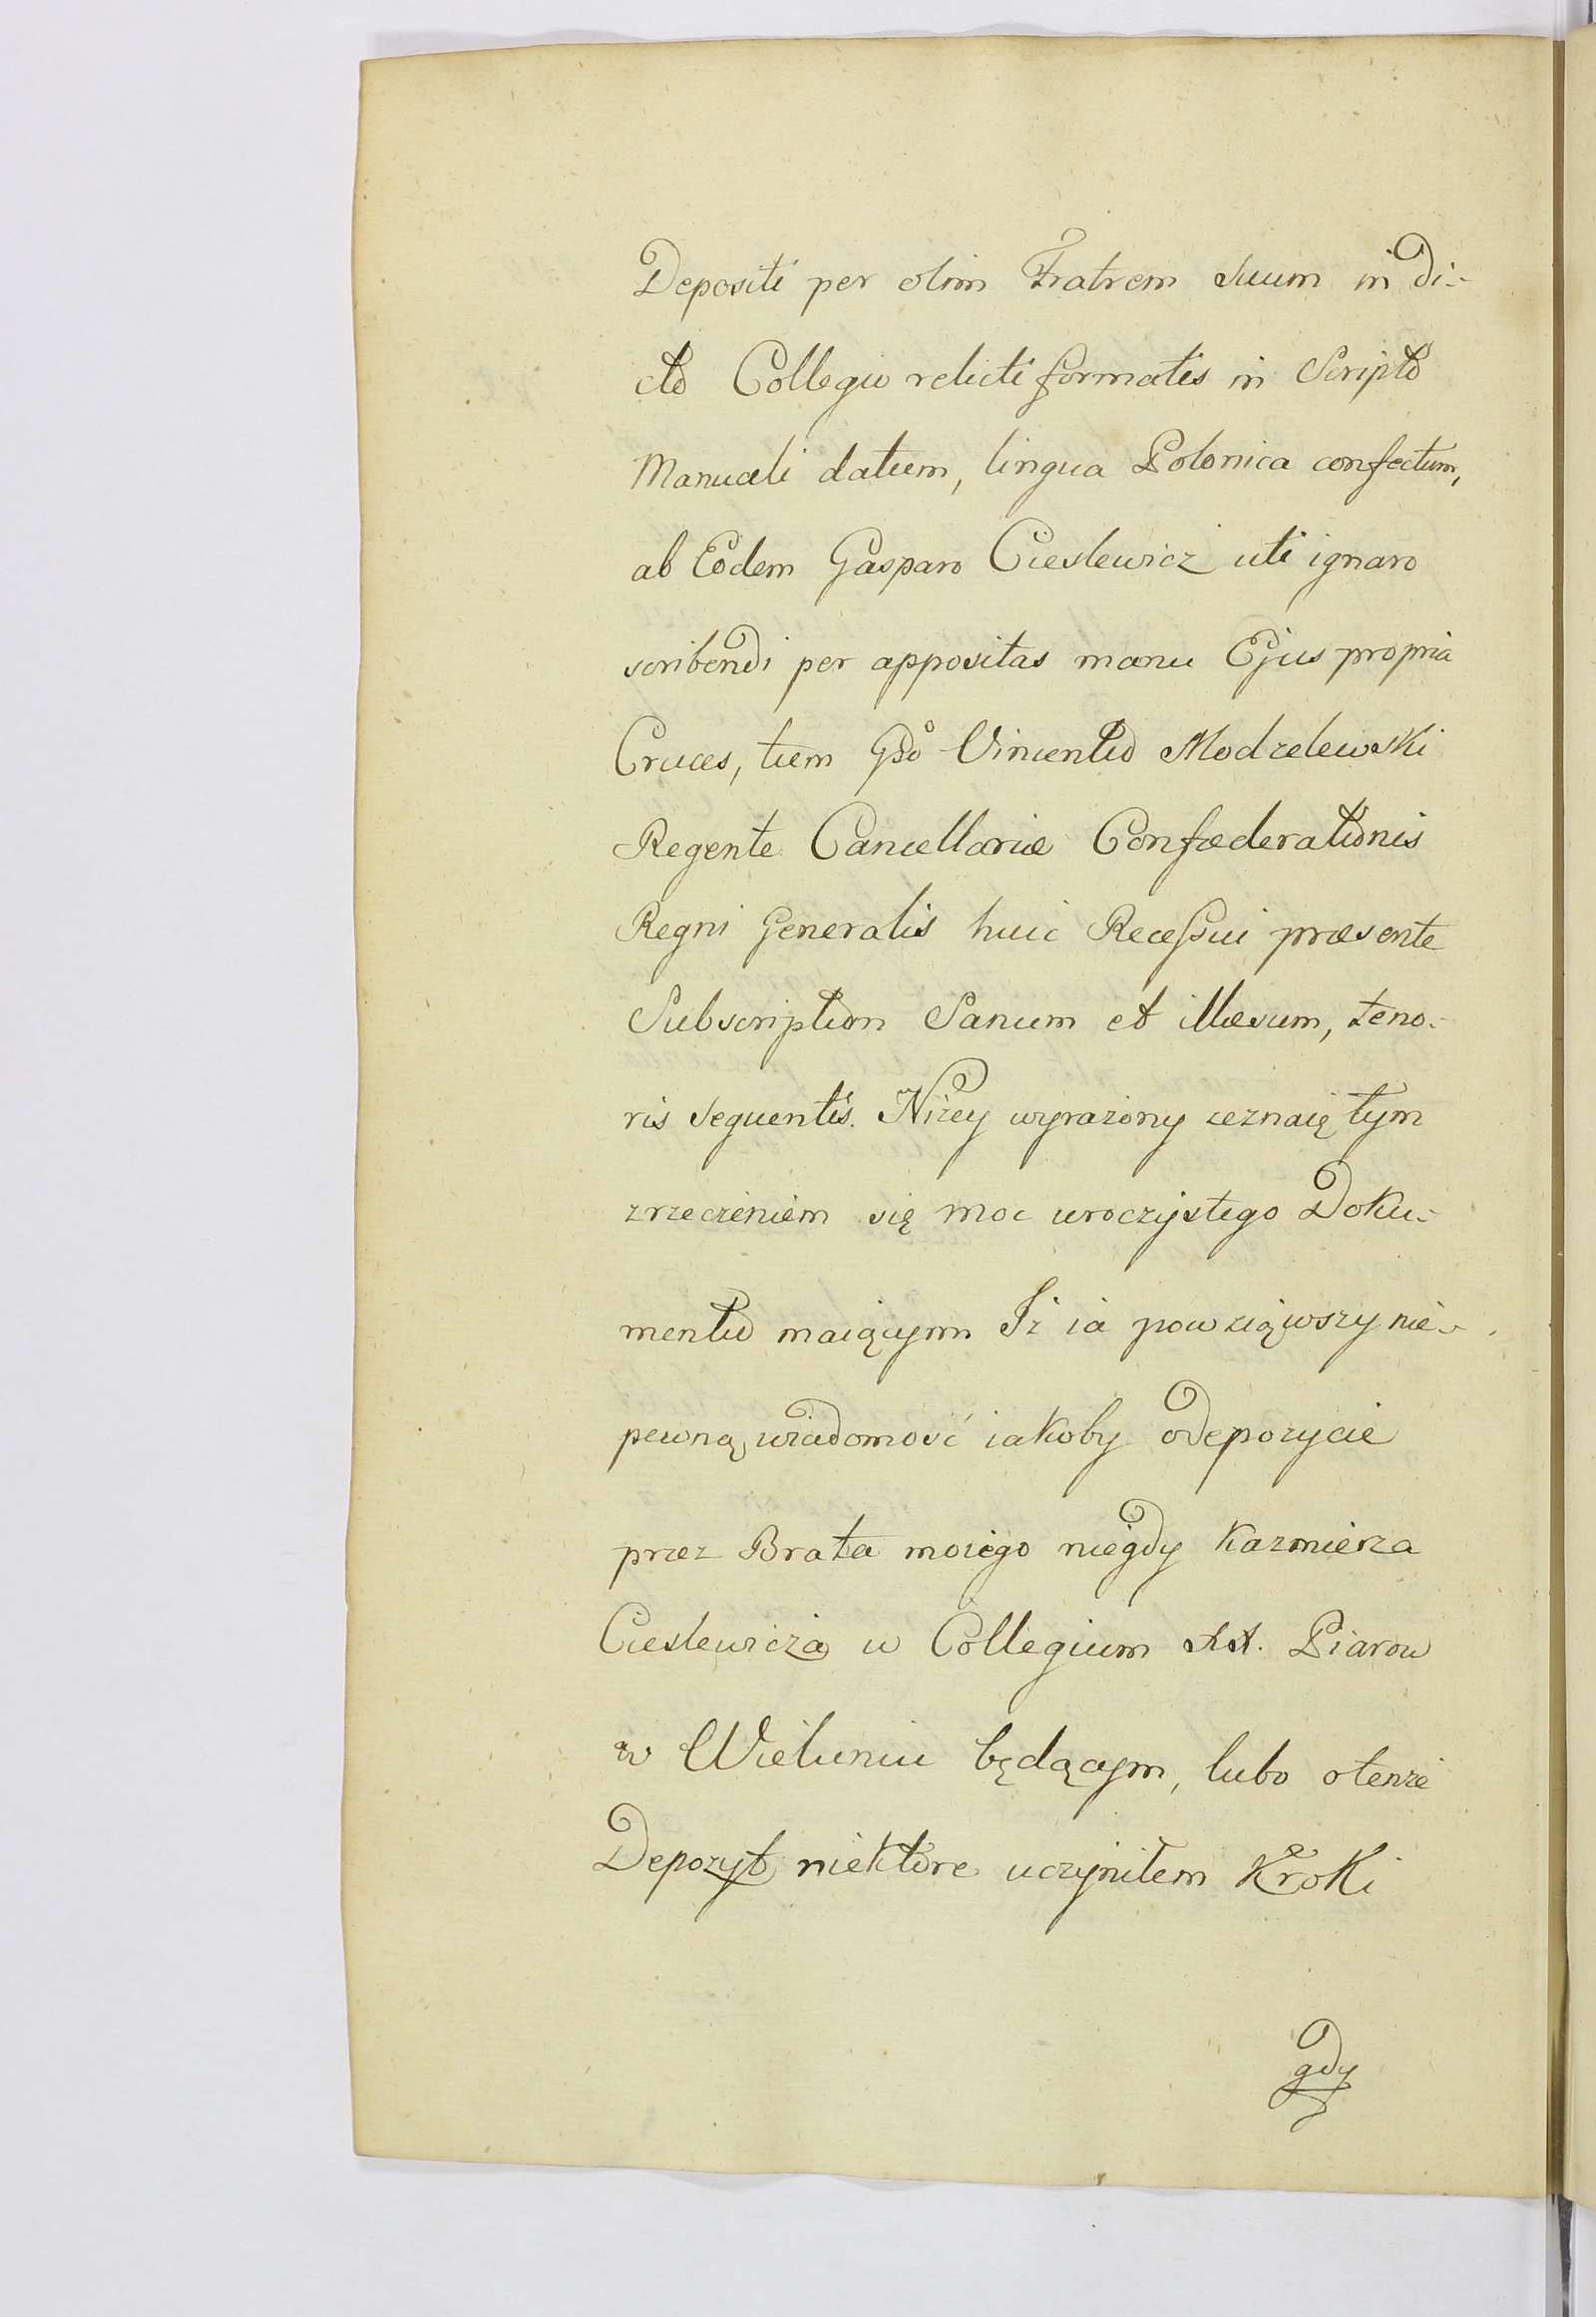 Depositi per olim Fratrem suum in di-
cto Collegio relicti formatis in Scripto
Manuali datum, lingua Polonica confectum,
ab Eodem Gasparo Cieslewicz uti ignaro
scribendi per appositas manu Ejus propria
Cruces, tum Gso Vincentio Modzelewski
Regente Cancellariæ Confæderationis
Regni Generalis huic Recessui præsente
Subscriptum Sanum et illæsum, teno-
ris sequentis. Niżey wyrażony zeznaię tym
zrzeczeniem się moc uroczystego Doku-
mentu maiącym Iż ia powziąwszy nie-
pewną wiadomość iakoby o depozycie
przez Brata moiego niegdy Kazmierza
Cieslewicza w Collegium XX. Piarow
w Wieluniu będącym, lubo o tenże
Depozyt niektore uczyniłem Kroki
gdy